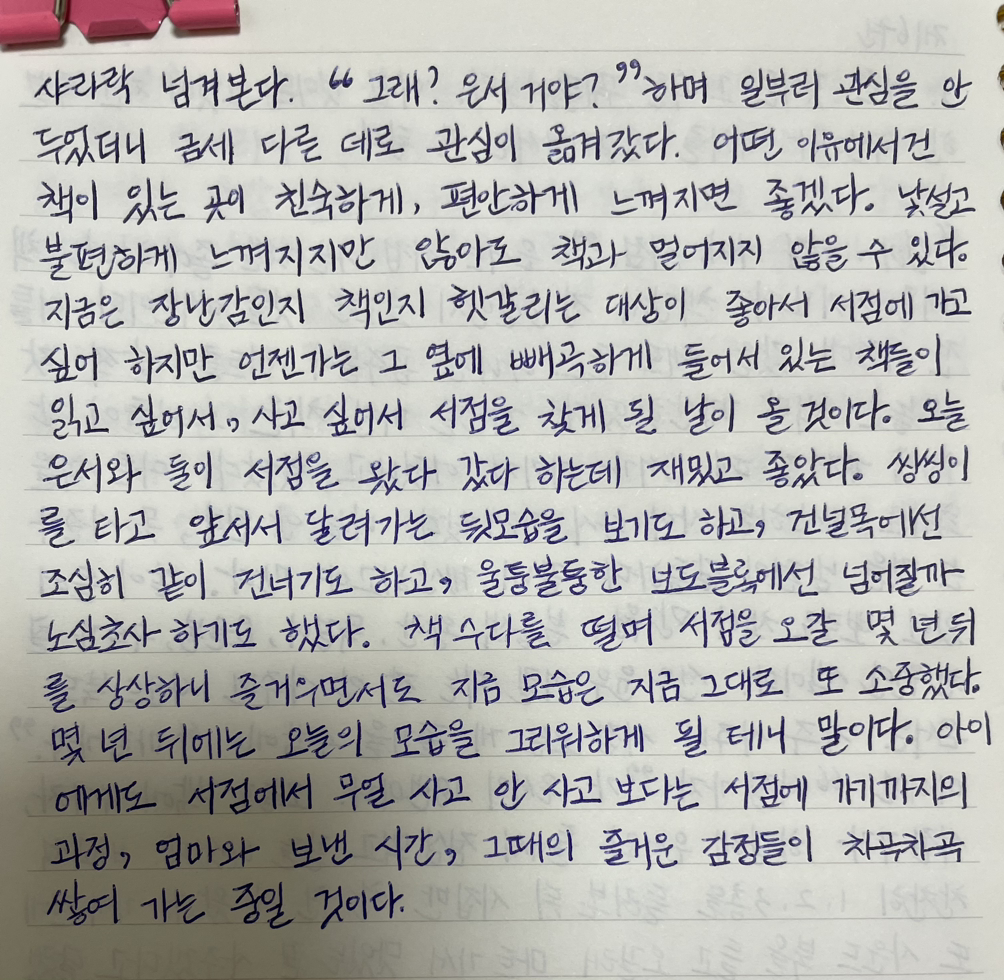 샤라락 넘겨본다. "그래? 은서 거야?" 하며 일부러 관심을 안
두었더니 금세 다른 데로 관심이 옮겨갔다. 어떤 이유에서건
책이 있는 곳이 친숙하게, 편안하게 느껴지면 좋겠다. 낯설고
불편하게 느껴지지만 않아도 책과 멀어지지 않을 수 있다.
지금은 장난감인지 책인지 헷갈리는 대상이 좋아서 서점에 가고
싶어 하지만 언젠가는 그 옆에 빼곡하게 들어서 있는 책들이
읽고 싶어서, 사고 싶어서 서점을 찾게 될 날이 올 것이다. 오늘
은서와 둘이 서점을 왔다 갔다 하는데 재밌고 좋았다. 씽씽이
를 타고 앞서서 달려가는 뒷모습을 보기도 하고, 건널목에선
조심히 같이 건너기도 하고, 울퉁불퉁한 보도블록에선 넘어질까
노심초사 하기도 했다. 책 수다를 떨며 서점을 오갈 몇 년 뒤
를 상상하니 즐거우면서도 지금 모습은 지금 그대로 또 소중했다.
몇 년 뒤에는 오늘의 모습을 그리워하게 될 테니 말이다. 아이
에게도 서점에서 무얼 사고 안 사고 보다는 서점에 가기까지의
과정, 엄마와 보낸 시간, 그때의 즐거운 감정들이 차곡차곡
쌓여 가는 중일 것이다.